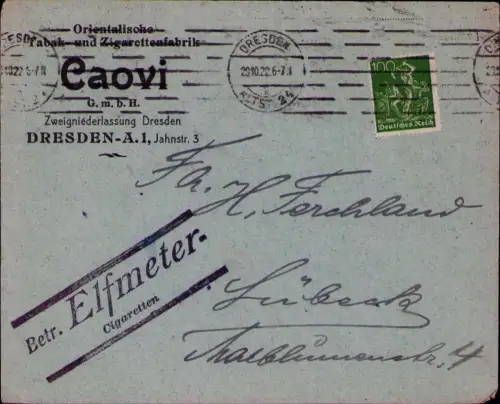 Orientalische
Tabak- und Zigarettenfabrik
Caovi
G. m. b. H.
Zweigniederlassung Dresden
DRESDEN-A. 1, Jahnstr. 3
DRESDEN
29.10.22.6-7 N
ALTST. 24
100
Deutsches Reich
Fa. H. Ferchland
Lübeck
Betr. Elfmeter-
Cigaretten